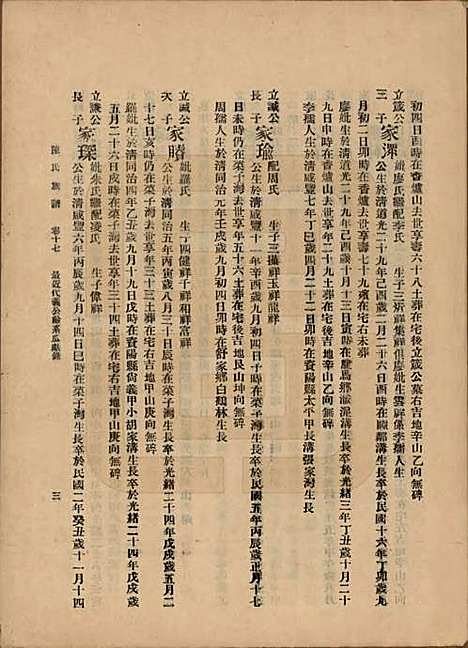 初四日酉時在香爐山去世享壽六十八土葬在宅後立箴公墓右吉地辛山乙向無碑
立箴公
三子 家深 妣廖氏繼配李氏 生子三斯祥集祥俱廖妣生雲祥係李孺人生
公生於清道光二十九年己酉歲二月二十六日酉時在陳鄰溝生長卒於民國十六年丁卯歲九
月初二日卯時在香爐山去世享壽七十九殯在宅右未葬
廖妣生於清道光二十九年己酉歲十月十三日寅時在賡颺鄉泥溝生長卒於光緒三年丁丑歲十月二十
九日申時在香爐山去世享年二十九土葬在宅後吉地辛山乙向無碑
李孺人生於清咸豐七年丁巳歲四月二十二日卯時在資陽縣太平甲長溝張家灣生長
立誠公
長子 家瑜 配周氏 生子三攥祥玉祥龍祥
公生於清咸豐十一年辛酉歲九月初四日子時在菜子灣生長卒於民國五年丙辰歲正月十七
日未時仍在菜子灣去世享年五十六土葬在宅後吉地艮山坤向無碑
周孺人生於清同治元年壬戌歲九月初四日卯時在舒家鄉白鶴林生長
立誠公
次子 家瞔 妣羅氏 生子四健祥千祥和祥富祥
公生於清同治五年丙寅歲八月二十日辰時在菜子灣生長卒於光緒二十四年戊戌歲五月二
十七日亥時仍在菜子灣去世享年三十三土葬在宅右吉地甲山庚向無碑
羅妣生於清同治四年乙丑歲九月十九日戌時在資陽縣尙義甲小胡家溝生長卒於光緒二十四年戊戌歲
五月二十六日亥時在菜子灣去世享年三十四土葬在宅右吉地甲山庚向無碑
立誠公
長子 家琛 妣朱氏繼配凌氏 生子偉祥
公生於清咸豐六年丙辰歲九月十四日巳時在菜子灣生長卒於民國二年癸丑歲十一月十四
陳氏族譜 卷十七 最近代義公綸系瓜瓞錄 三